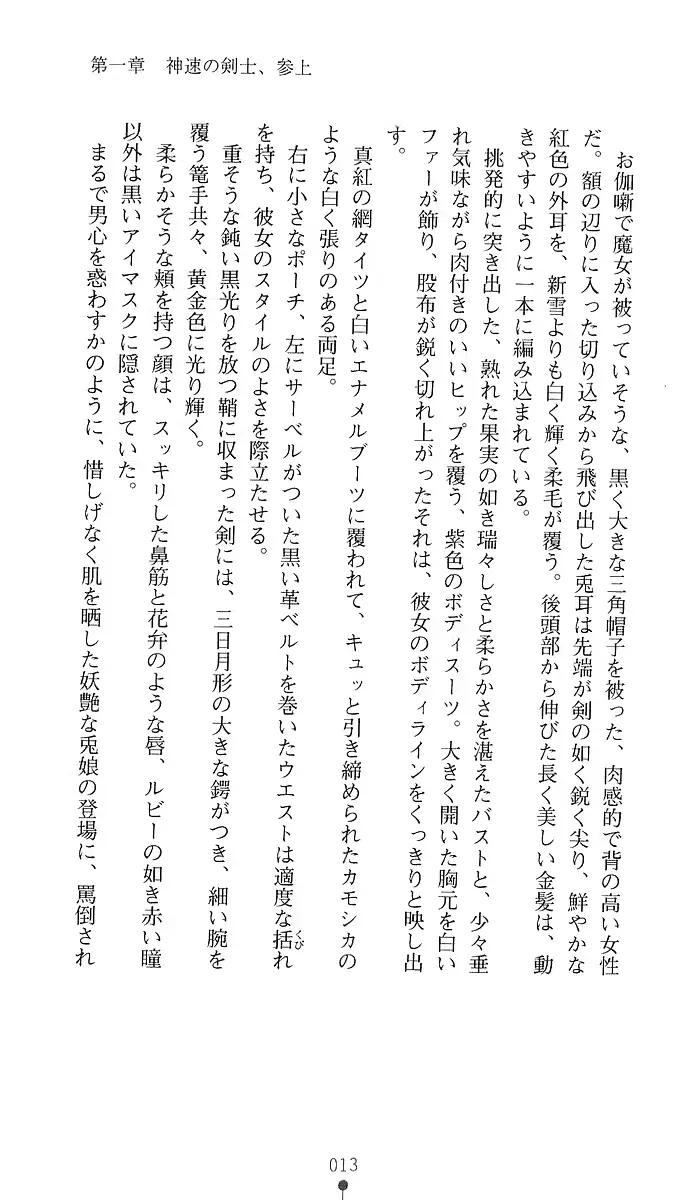 第一章　神速の剣士、参上
お伽噺で魔女が被っていそうな、黒く大きな三角帽子を被った、肉感的で背の高い女性
だ。額の辺りに入った切り込みから飛び出した兎耳は先端が剣の如く鋭く尖り、鮮やかな
紅色の外耳を、新雪よりも白く輝く柔毛が覆う。後頭部から伸びた長く美しい金髪は、動
きやすいように一本に編み込まれている。
挑発的に突き出した、熟れた果実の如き瑞々しさと柔らかさを湛えたバストと、少々垂
れ気味ながら肉付きのいいヒップを覆う、紫色のボディスーツ。大きく開いた胸元を白い
ファーが飾り、股布が鋭く切れ上がったそれは、彼女のボディラインをくっきりと映し出
す。
真紅の網タイツと白いエナメルブーツに覆われて、キュッと引き締められたカモシカの
ような白く張りのある両足。
右に小さなポーチ、左にサーベルがついた黒い革ベルトを巻いたウエストは適度な括れ
くび
を持ち、彼女のスタイルのよさを際立たせる。
重そうな鈍い黒光りを放つ鞘に収まった剣には、三日月形の大きな鍔がつき、細い腕を
覆う篭手共々、黄金色に光り輝く。
柔らかそうな頬を持つ顔は、スッキリした鼻筋と花弁のような唇、ルビーの如き赤い瞳
以外は黒いアイマスクに隠されていた。
まるで男心を惑わすかのように、惜しげなく肌を晒した妖艶な兎娘の登場に、罵倒され
013